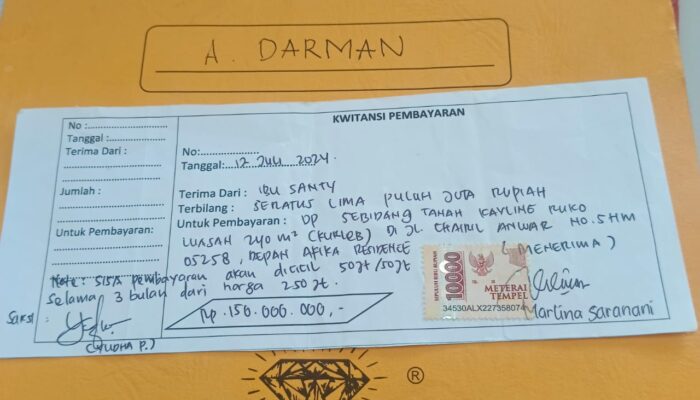 A. DARMAN
KWITANSI PEMBAYARAN
No :
Tanggal :
Terima Dari :
Jumlah :
Untuk Pembayaran:
No:
Tanggal: 12 JULI 2024.
Terima Dari : IBU SANTY
Terbilang : SERATUS LIMA PULUH JUTA RUPIAH
Untuk Pembayaran : DP SEBIDANG TANAH KAVLING RUKO
LUASAH 240 m² () DI JL. CHAIRIL ANWAR NO. SHM
05258, DEPAN AFIKA RESIDENCE
(MENERIMA)
Note : SISA pembayaran akan dicicil 50jt/50jt
Selama 3 bulan dari harga 250 jt.
Rp. 150.000.000,-
Saksi :
(YUDHA P.)
SEPULUH RIBU RUPIAH
10000
METERAI
TEMPEL
34530ALX227358074
Martina Saranani
®